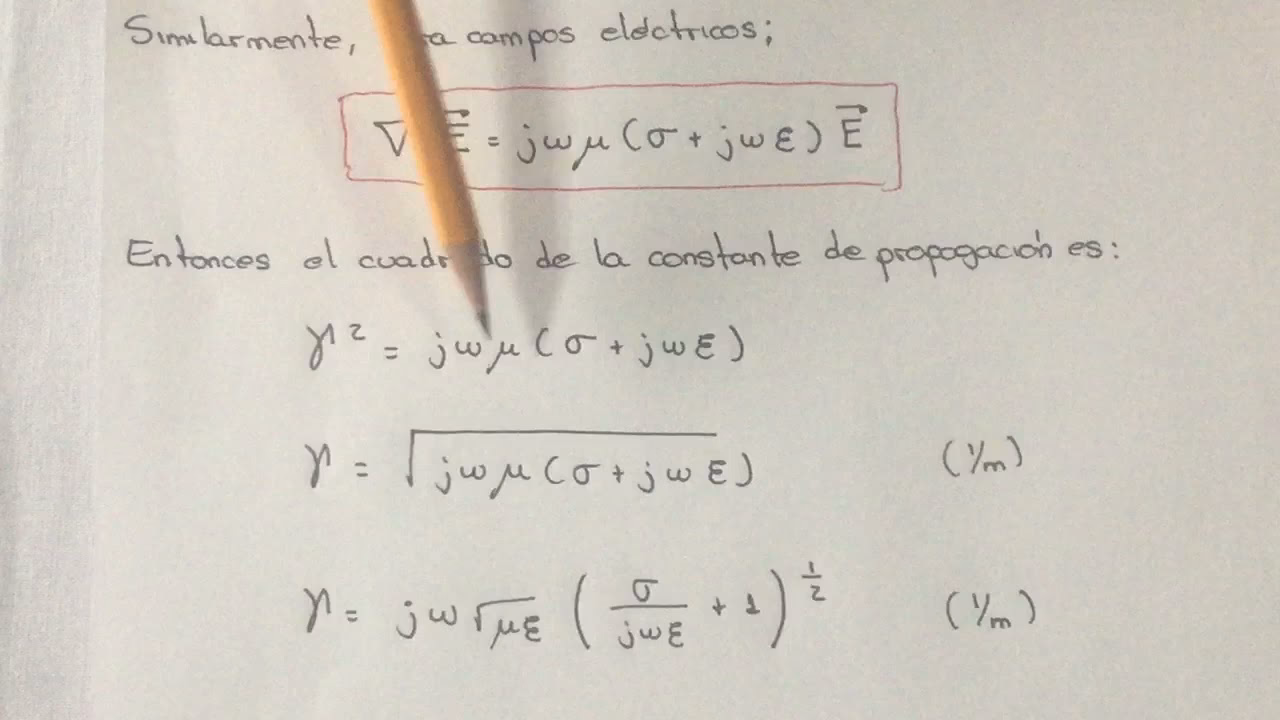 Similarmente, campos eléctricos;
∇ E⃗ = jωμ (σ + jωε) E⃗
Entonces el de la constante de propogación es:
γ² = jωμ (σ + jωε)
γ = √jωμ (σ + jωε) (1/m)
γ = jω√με (σ/jωε + 1)^½ (1/m)